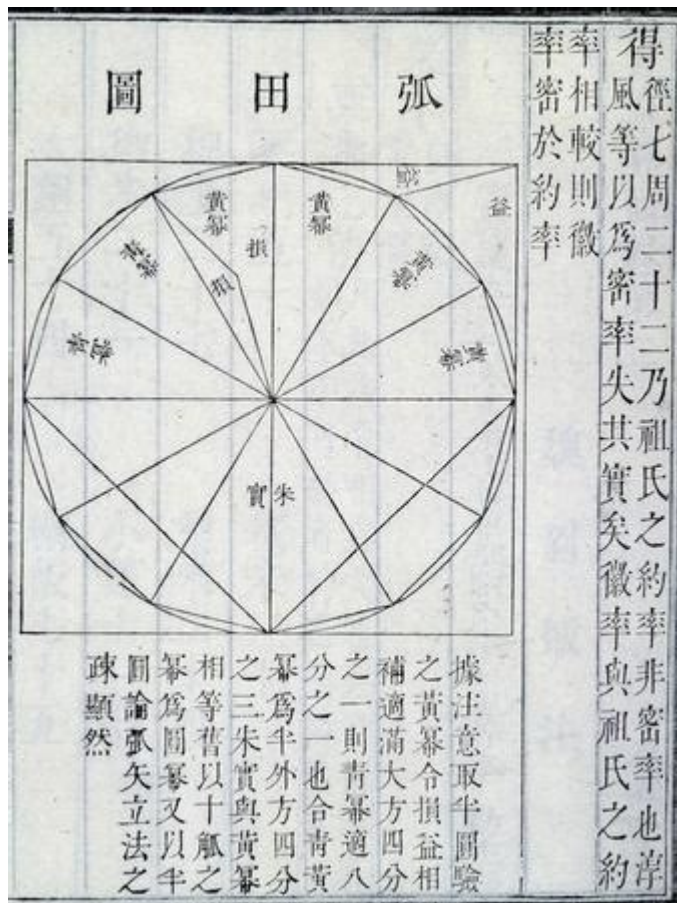 得
徑七周二十二乃祖氏之約率非密率也淳
風等以爲密率失其實矣徽率與祖氏之約
率相較則徽
率密於約率
弧田圖
益
益
黃冪
黃冪
黃冪
損
損
朱實
據注意取半圓驗
之黃冪令損益相
補適滿大方四分
之一則青冪適八
分之一也合青黃
冪爲半外方四分
之三朱實與黃冪
相等舊以十觚之
冪爲圓冪又以半
圓論弧矢立法之
疎顯然